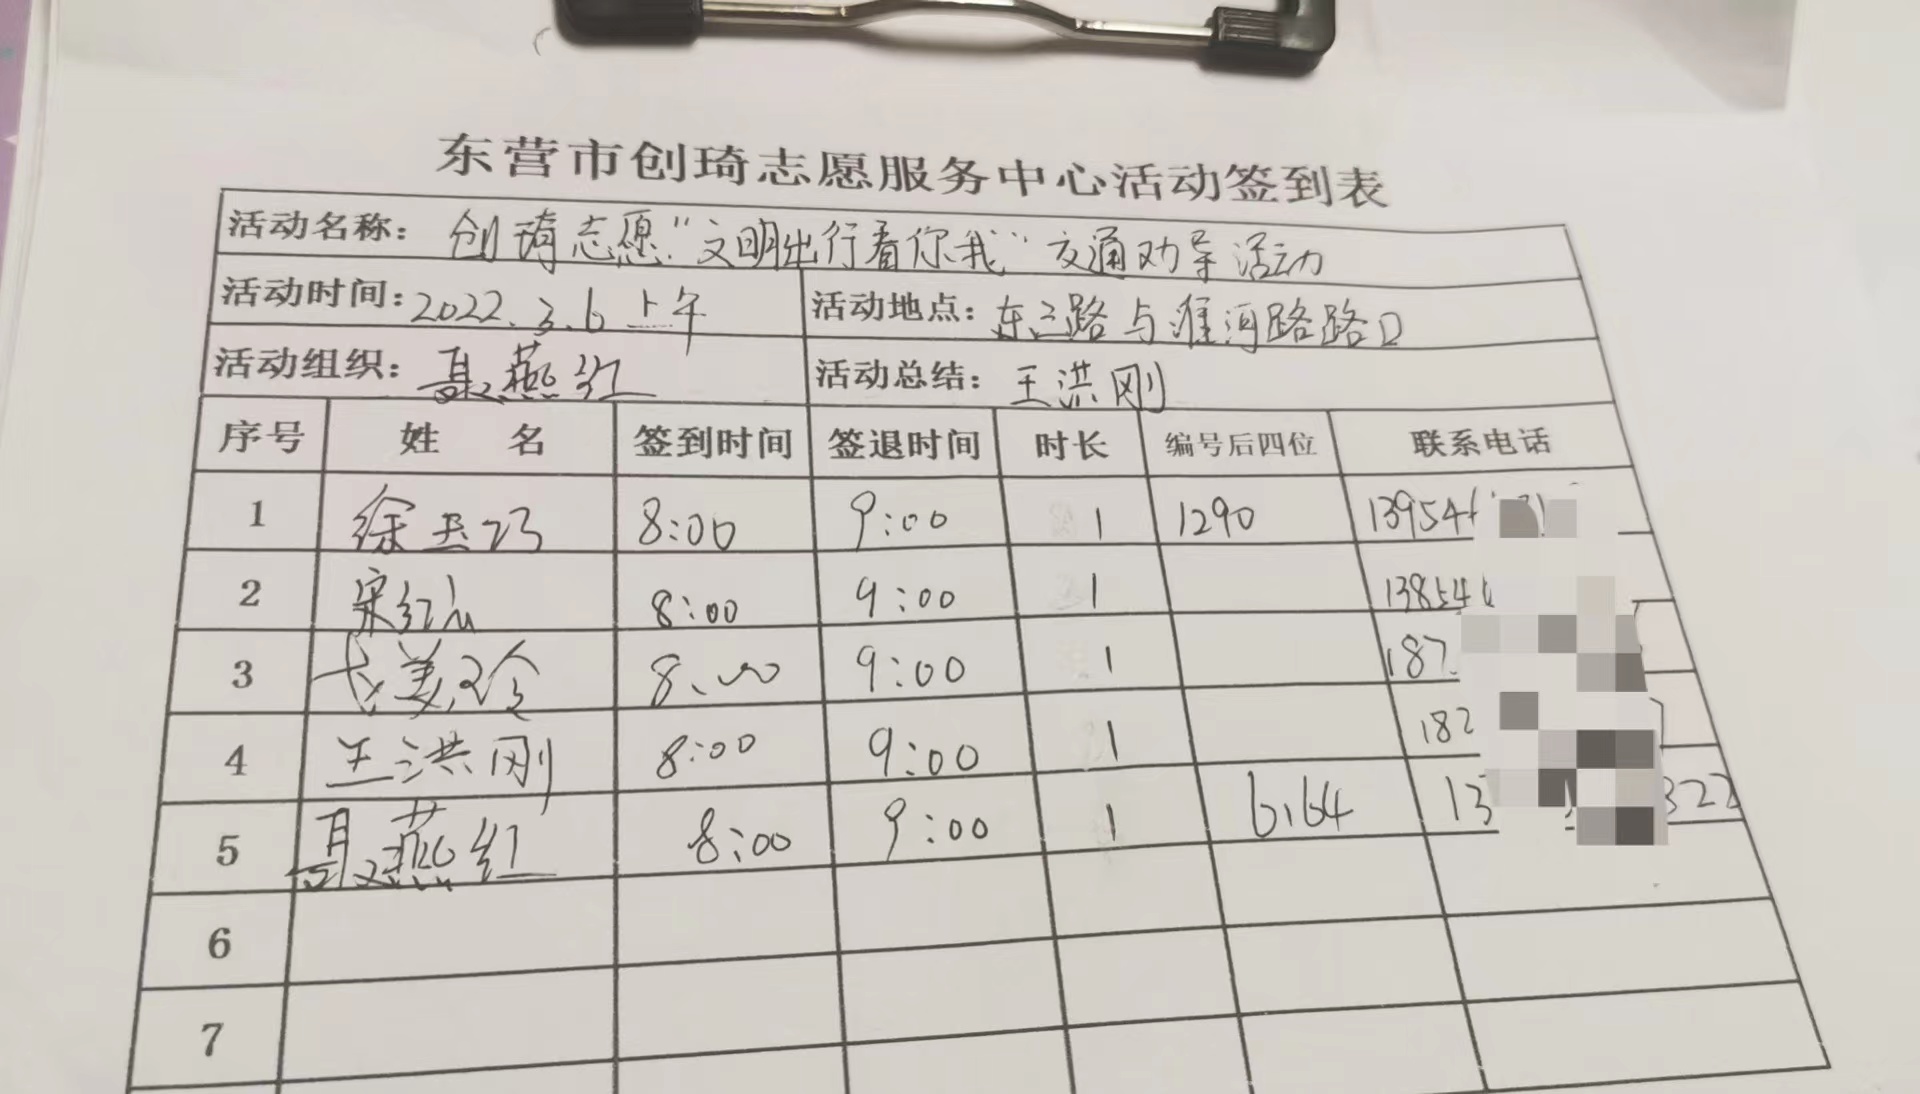 东营市创琦志愿服务中心活动签到表
活动名称： 创琦志愿“文明出行看你我”交通劝导活动
活动时间：2022.3.6 上午 活动地点：东三路与淮河路路口
活动组织： 聂燕红 活动总结： 王洪刚
序号 姓 名 签到时间 签退时间 时长 编号后四位 联系电话
1 徐玉巧 8:00 9:00 1 1290 13954
2 宋红 8:00 9:00 1 13854
3 美玲 8:00 9:00 1 187
4 王洪刚 8:00 9:00 1 182
5 聂燕红 8:00 9:00 1 6164 13 322
6
7